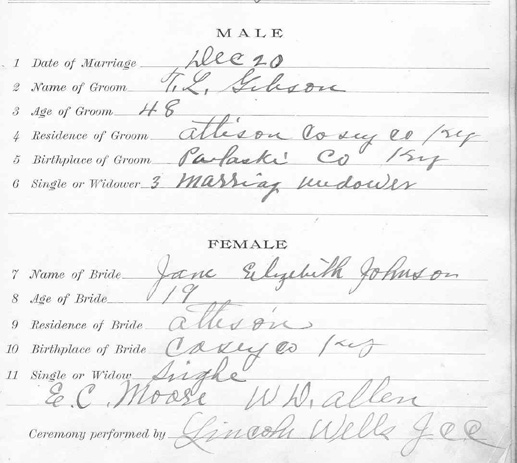 MALE
1 Date of Marriage Dec 20
2 Name of Groom T. L. Gibson
3 Age of Groom 48
4 Residence of Groom Attison Casey Co Ky
5 Birthplace of Groom Palaski Co Ky
6 Single or Widower 3 Marriag widower
FEMALE
7 Name of Bride Jane Elizebith Johnson
8 Age of Bride 19
9 Residence of Bride Attison
10 Birthplace of Bride Casey Co Ky
11 Single or Widow Single
E. C. Moore W D. Allen
Ceremony performed by Lincoln Wells J C C